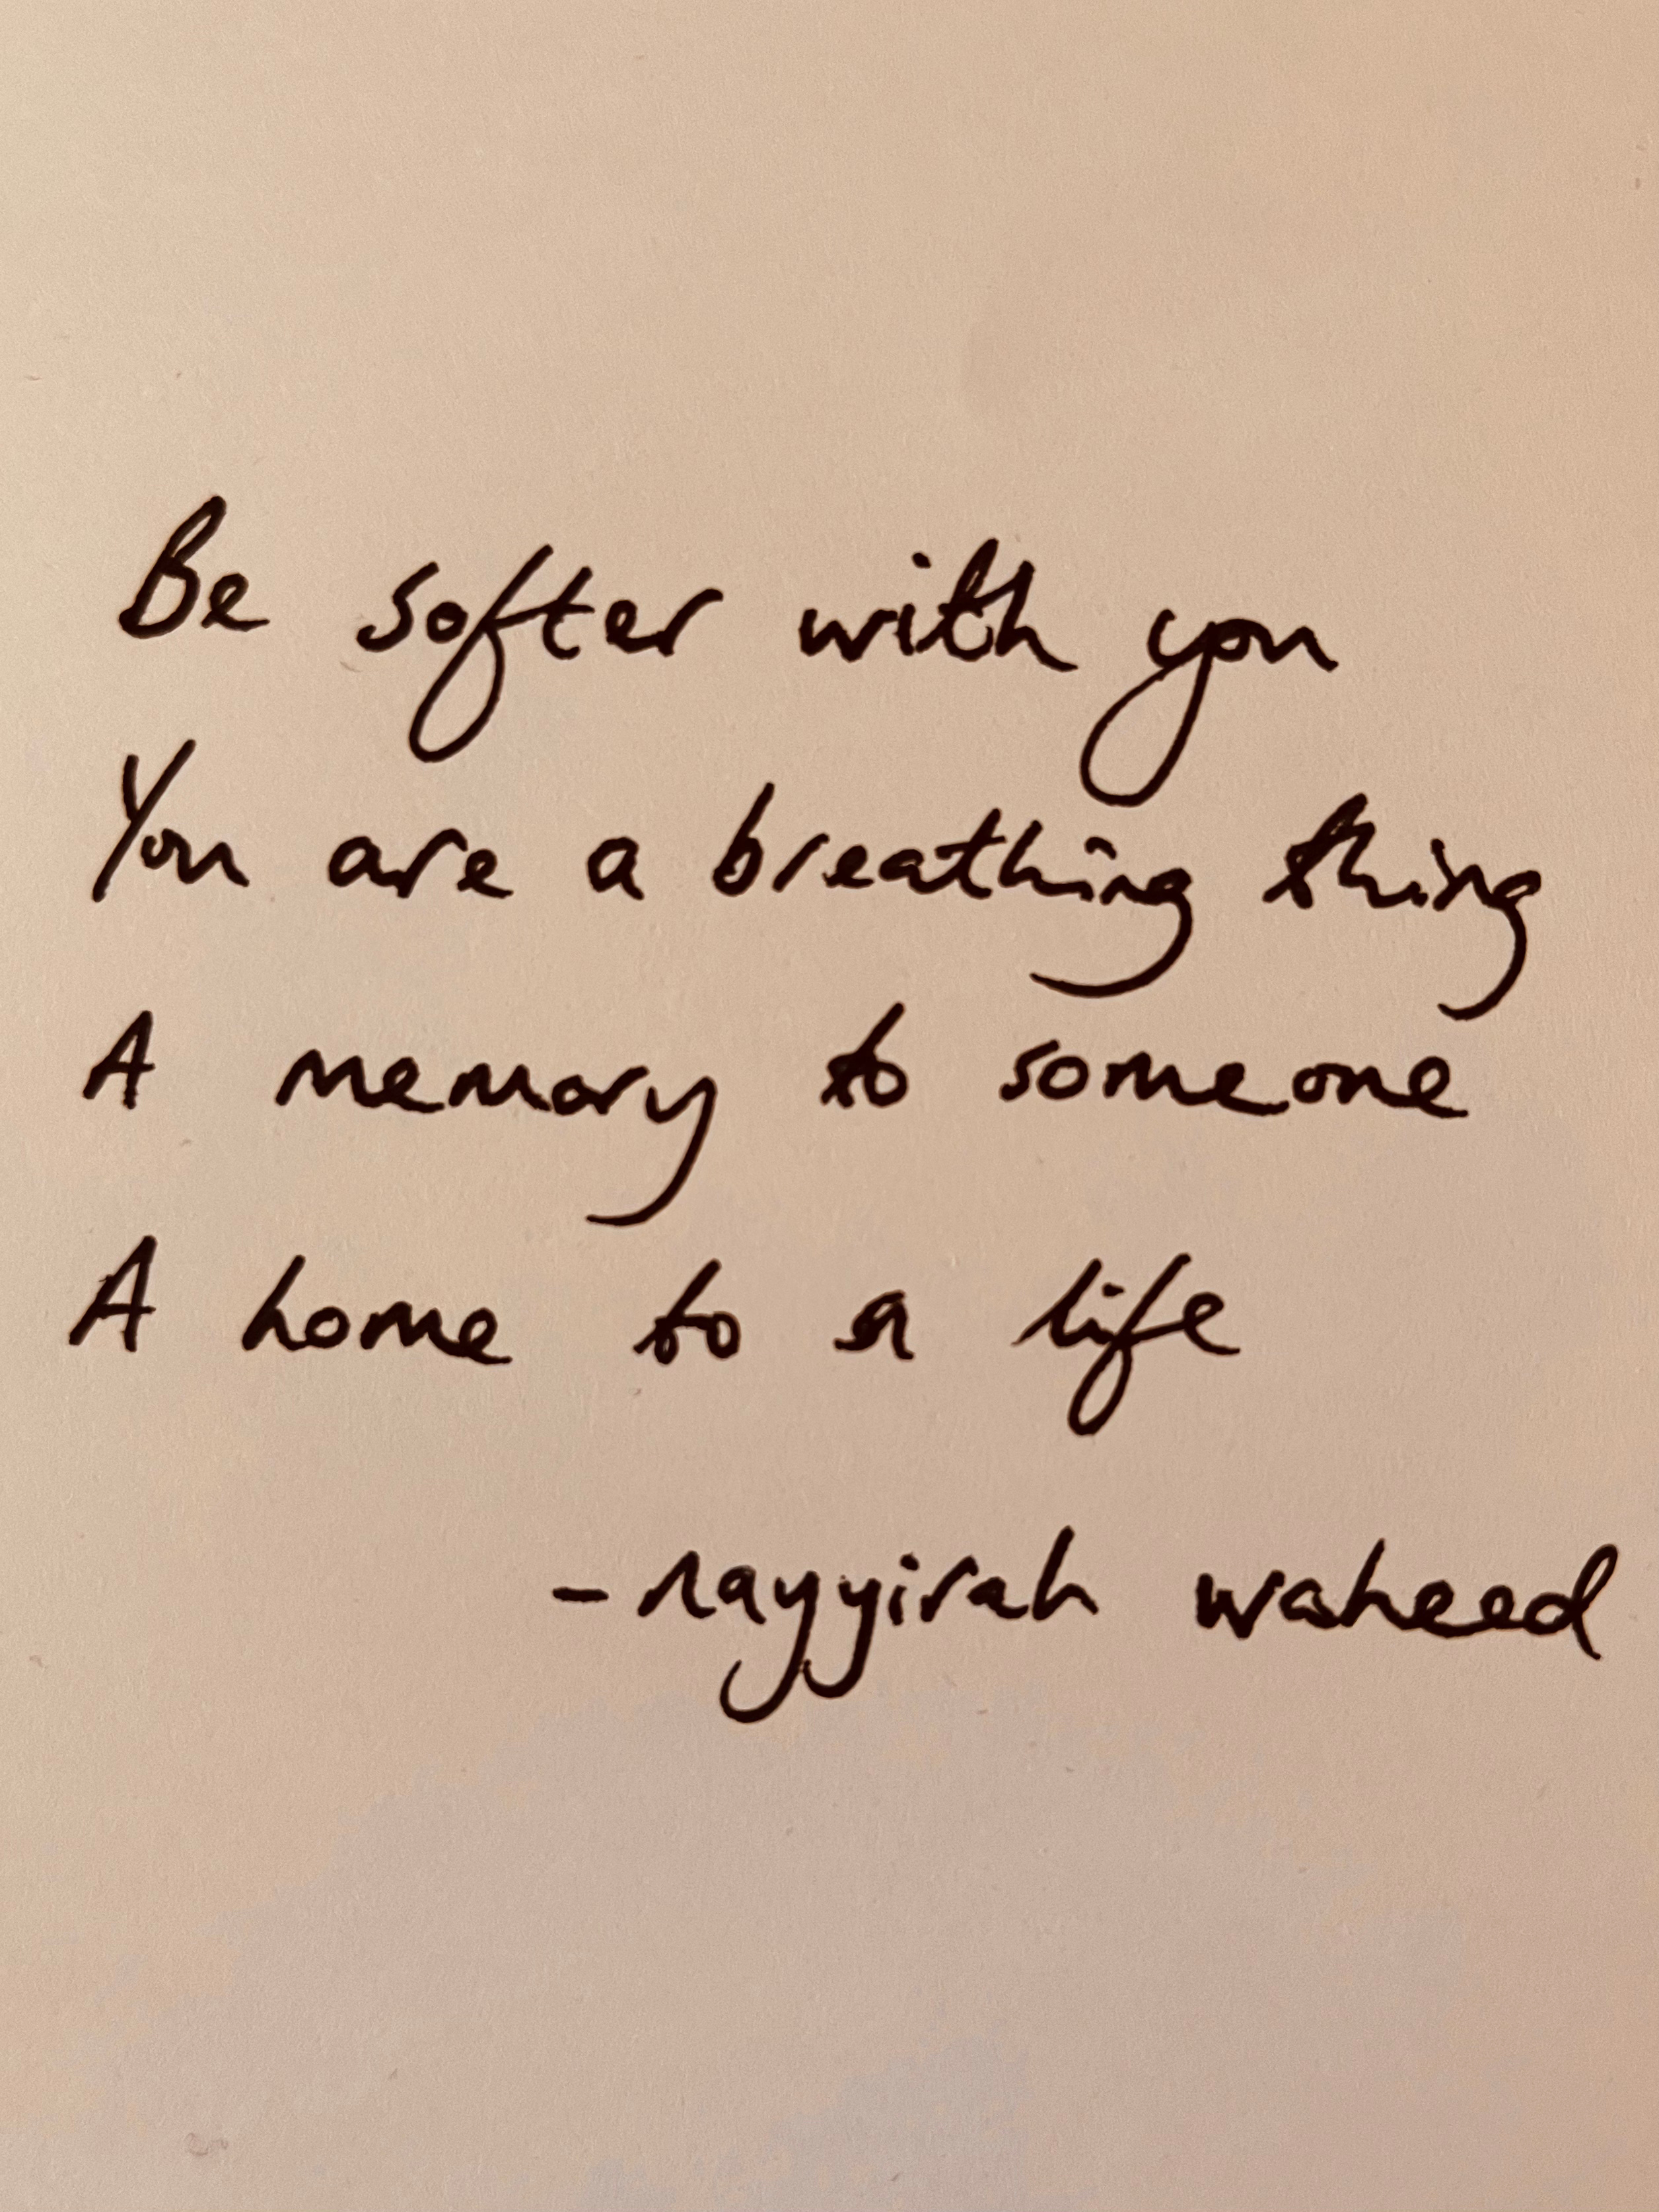 Be softer with you
You are a breathing thing
A memory to someone
A home to a life
- nayyirah waheed